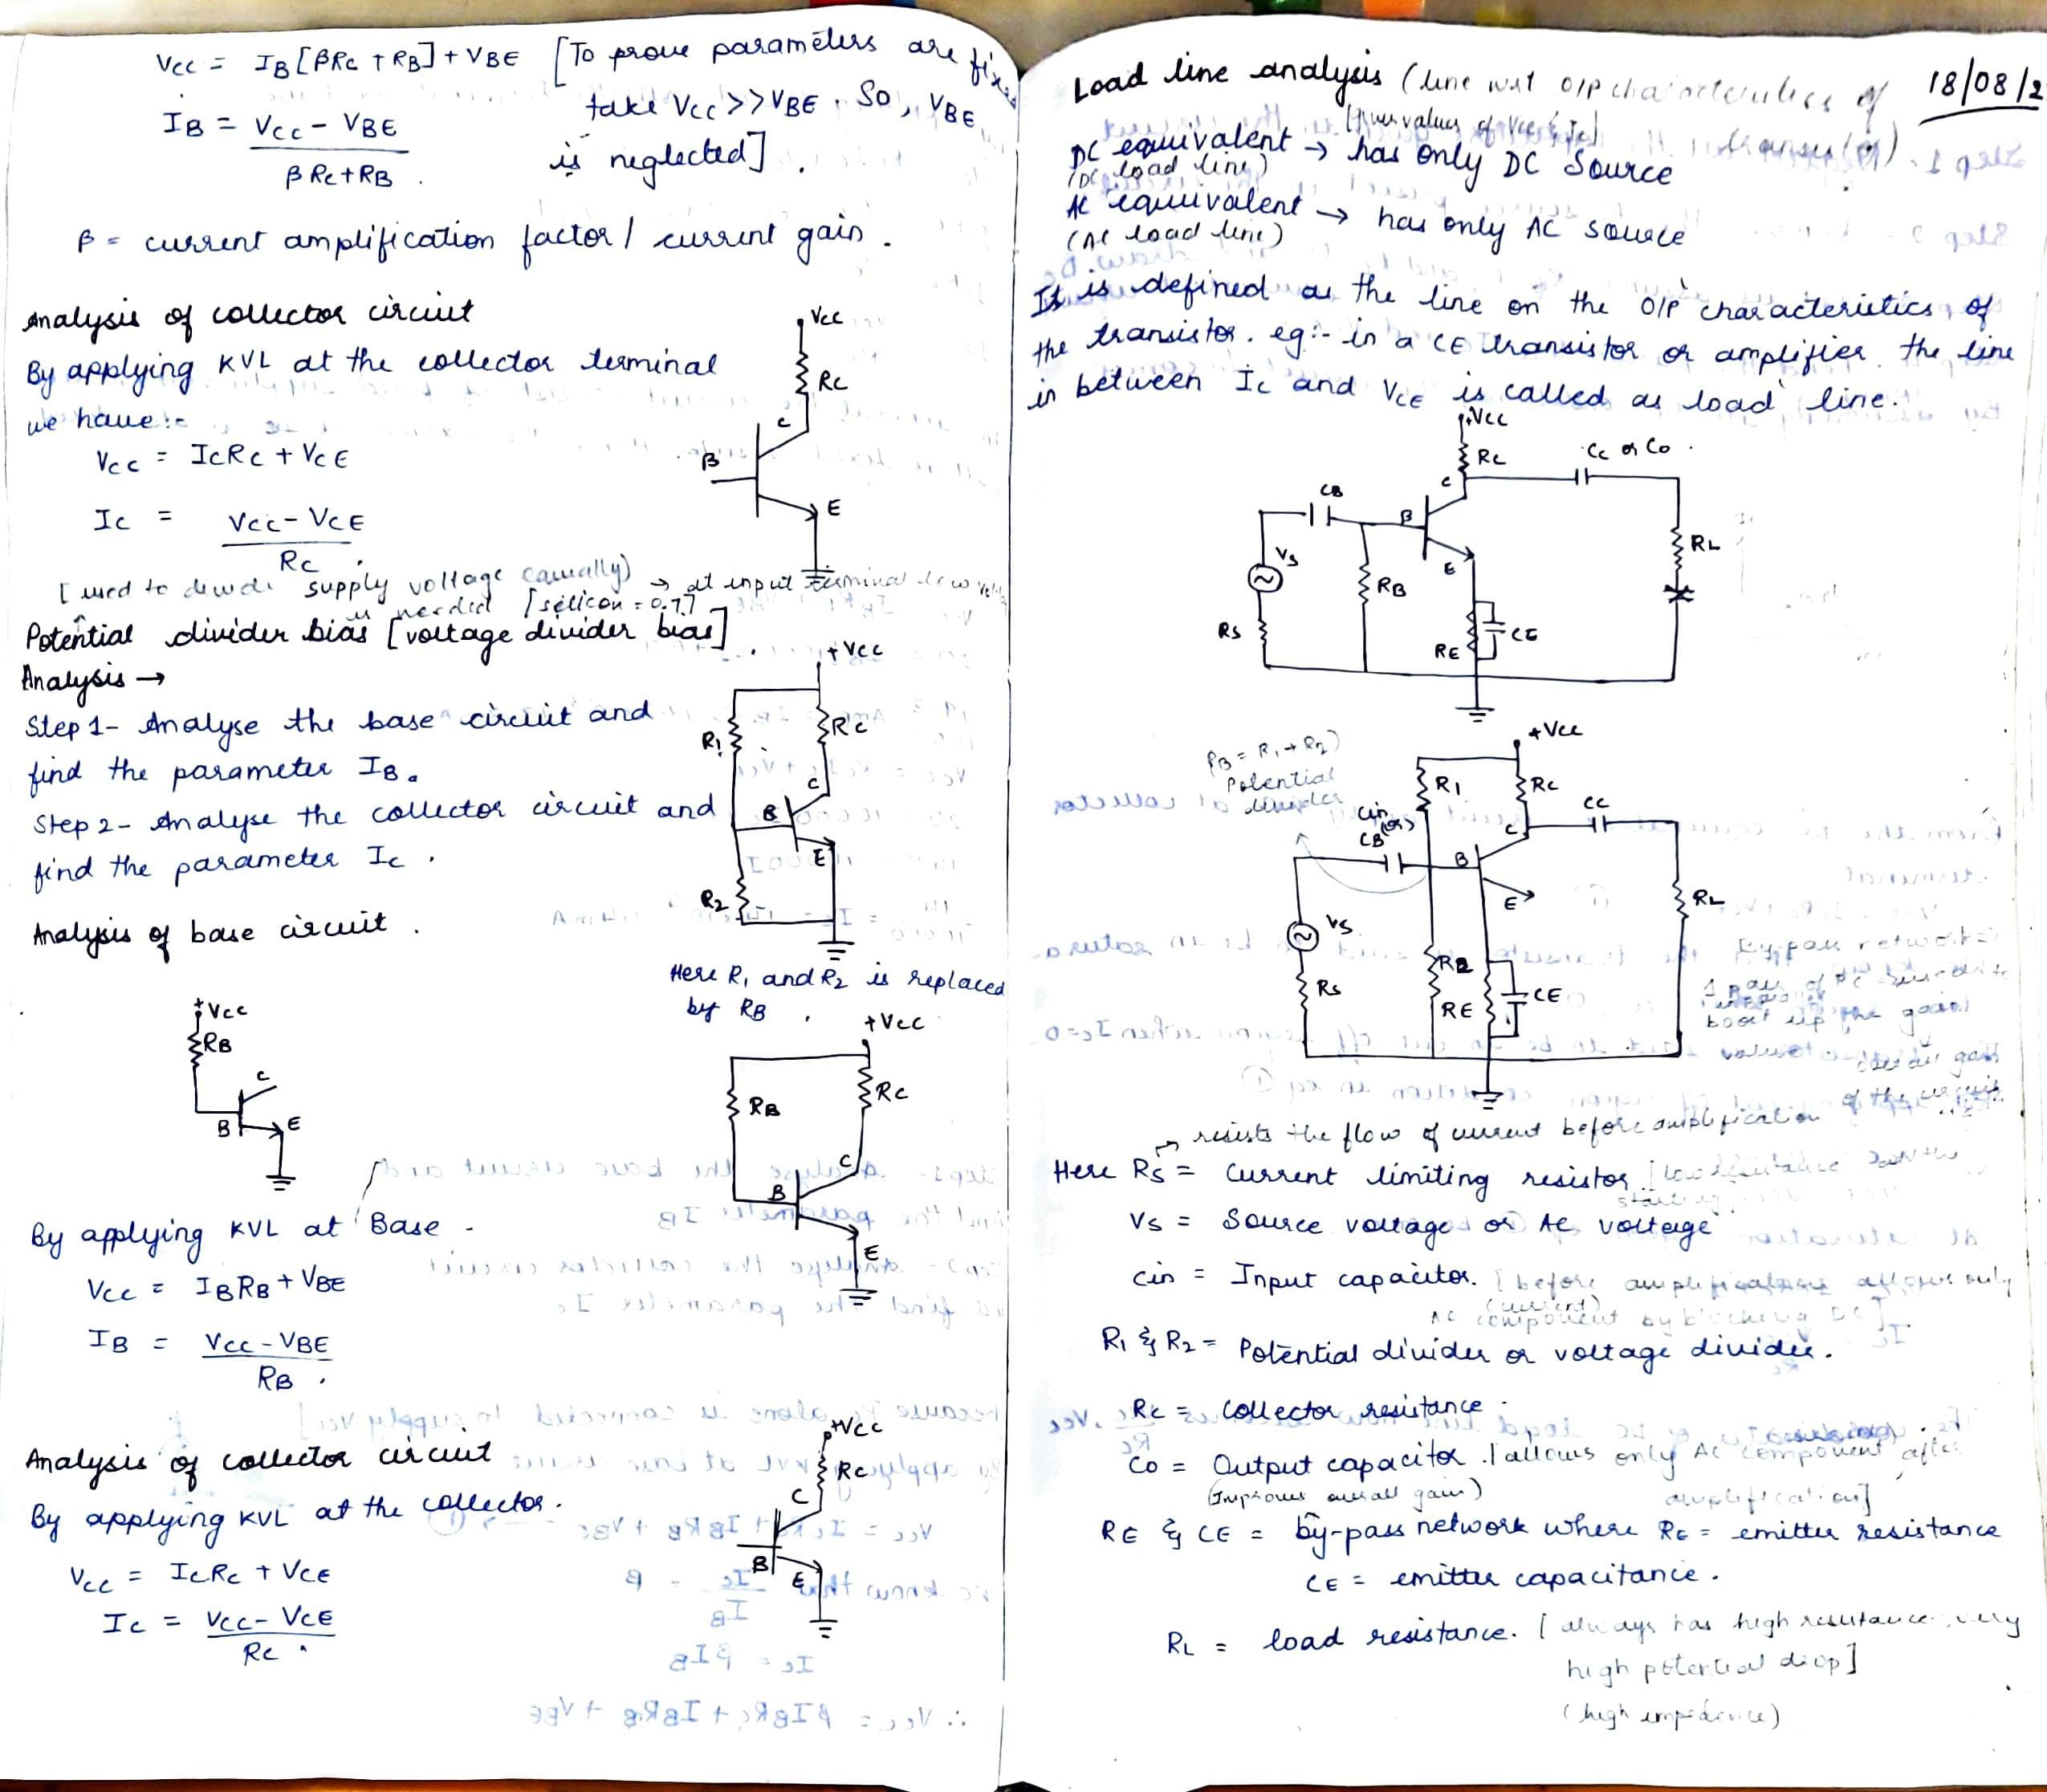 Vcc = IB[βRc + RB] + VBE [To prove parameters are fixed
take Vcc >> VBE. So, VBE
is neglected].
IB = Vcc - VBE
βRc + RB.
β = current amplification factor / current gain.
Analysis of collector circuit
By applying KVL at the collector terminal
we have :-
Vcc = IcRc + VCE
Ic = Vcc - VCE
Rc.
Vcc
Rc
C
B
E
supply voltage → at input terminal low
is needed [silicon = 0.7]
Potential divider bias [voltage divider bias].
Analysis →
Step 1- Analyse the base circuit and
find the parameter IB.
Step 2- Analyse the collector circuit and
find the parameter Ic.
+Vcc
R1
Rc
C
B
E
R2
Analysis of base circuit.
Here R1 and R2 is replaced
by RB.
+Vcc
RB
C
B
E
+Vcc
RB
Rc
C
B
E
By applying KVL at Base -
Vcc = IBRB + VBE
IB = Vcc - VBE
RB.
Analysis of collector circuit
By applying KVL at the collector.
Vcc = IcRc + VCE
Ic = Vcc - VCE
Rc.
+Vcc
Rc
C
B
E
18/08/2
Load line analysis (line wrt O/P characteristics of
transistor).
DC equivalent → has only DC Source
(DC load line)
AC equivalent → has only AC source
(AC load line)
It is defined as the line on the O/P characteristics of
the transistor. eg:- in a CE transistor or amplifier the line
in between Ic and VCE is called as load line.
+Vcc
Rc
Cc or Co.
C
CB
B
E
Vs
RB
RL
Rs
RE
CE
+Vcc
RB = R1 + R2)
Potential
divider
R1
Rc
Cc
Cin
(or)
CB
C
B
E
Vs
RL
R2
Rs
RE
CE
By-pass network =
boost up the gain
overall gain
of the circuit
→ resists the flow of current before amplification
Here Rs = Current limiting resistor
Vs = Source voltage or AC voltage
Cin = Input capacitor. [before amplification allows only
AC component (current) by blocking DC]
R1 & R2 = Potential divider or voltage divider.
Rc = collector resistance.
Co = Output capacitor. [allows only AC component after
(Improves overall gain) amplification]
RE & CE = by-pass network where RE = emitter resistance
CE = emitter capacitance.
RL = load resistance. [always has high resistance, very
high potential drop]
(high impedance)